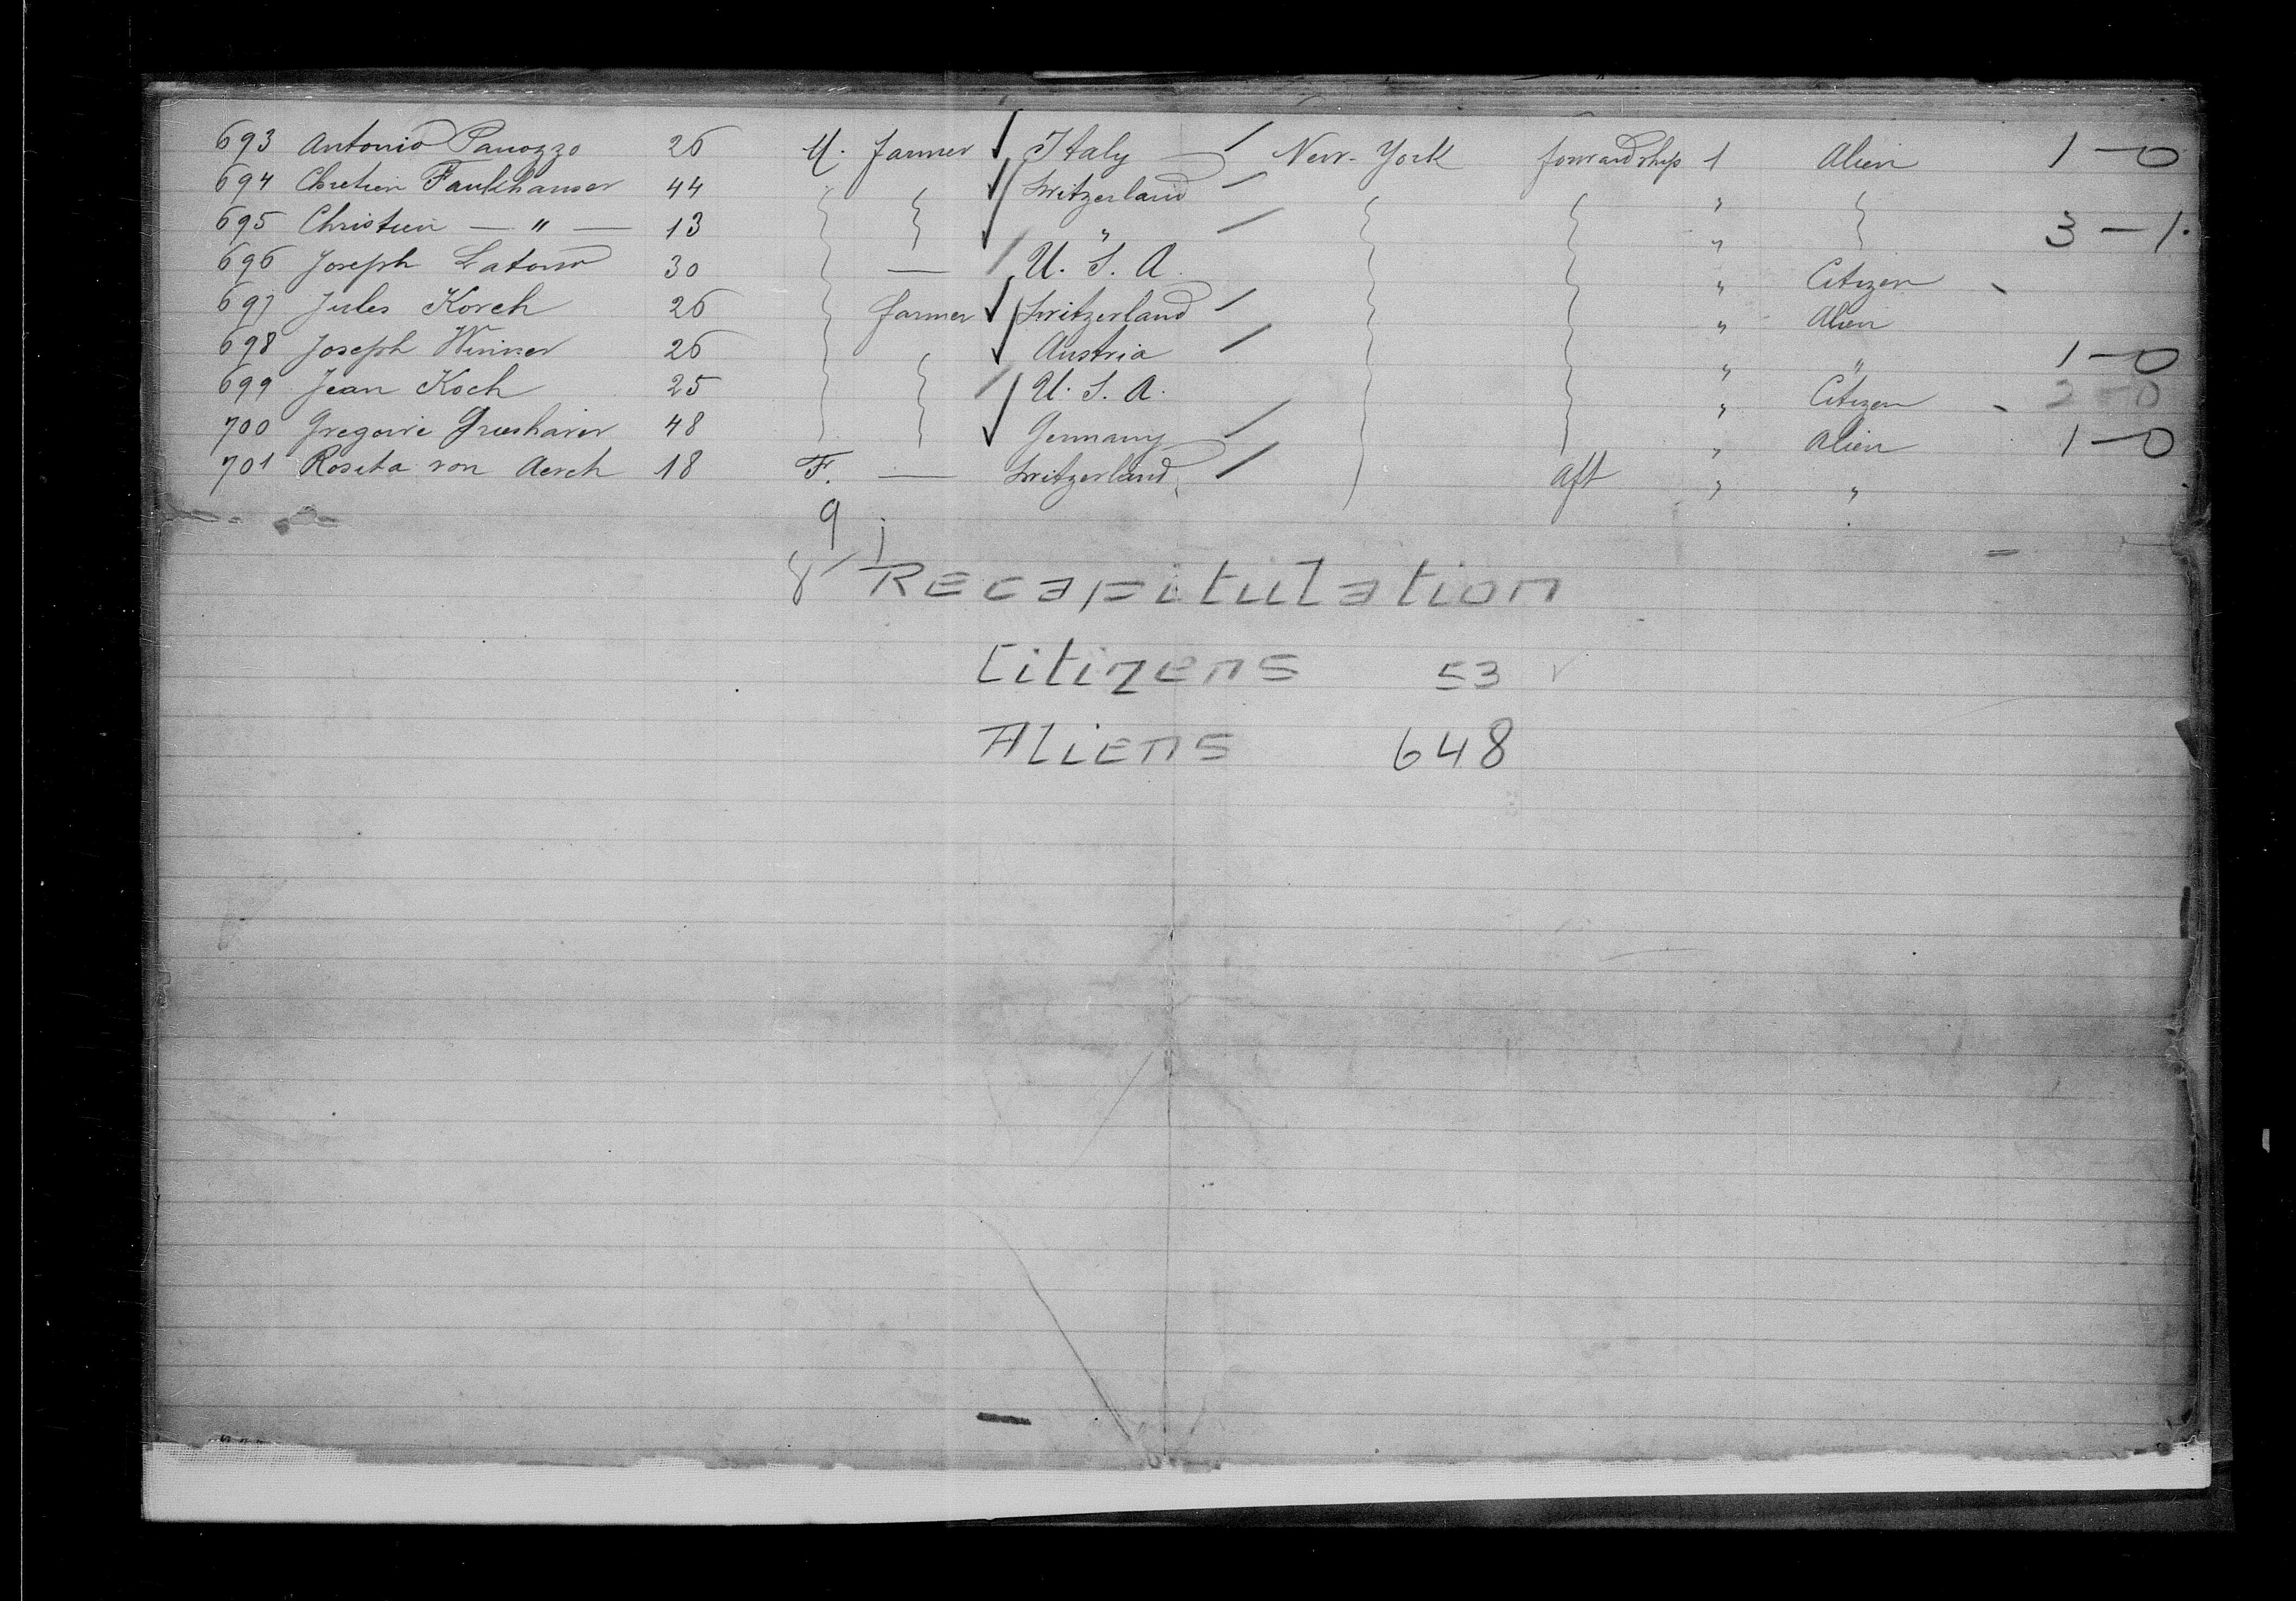 693 Antonio Panozzo 26 M. farmer Italy New-York forwardship 1 Alien 1-0
694 Chretien Faukhauser 44 " Switzerland "
695 Christien — " — 13 " " 3-1.
696 Joseph 30 — U. S. A. " Citizen
697 Jules Korch 26 farmer Switzerland " Alien
698 Joseph 26 Austria " " 1-0
699 Jean Koch 25 U. S. A. " Citizen 2-0
700 Gregoire 48 Germany " Alien 1-0
701 Rosita von Aesch 18 F. — Switzerland aft " "
9
8/1
Recapitulation
Citizens 53
Aliens 648